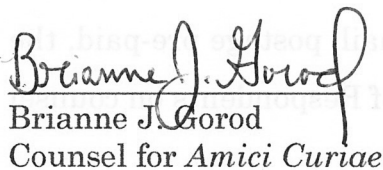 Brianne J. Gorod
Brianne J. Gorod
Counsel for Amici Curiae